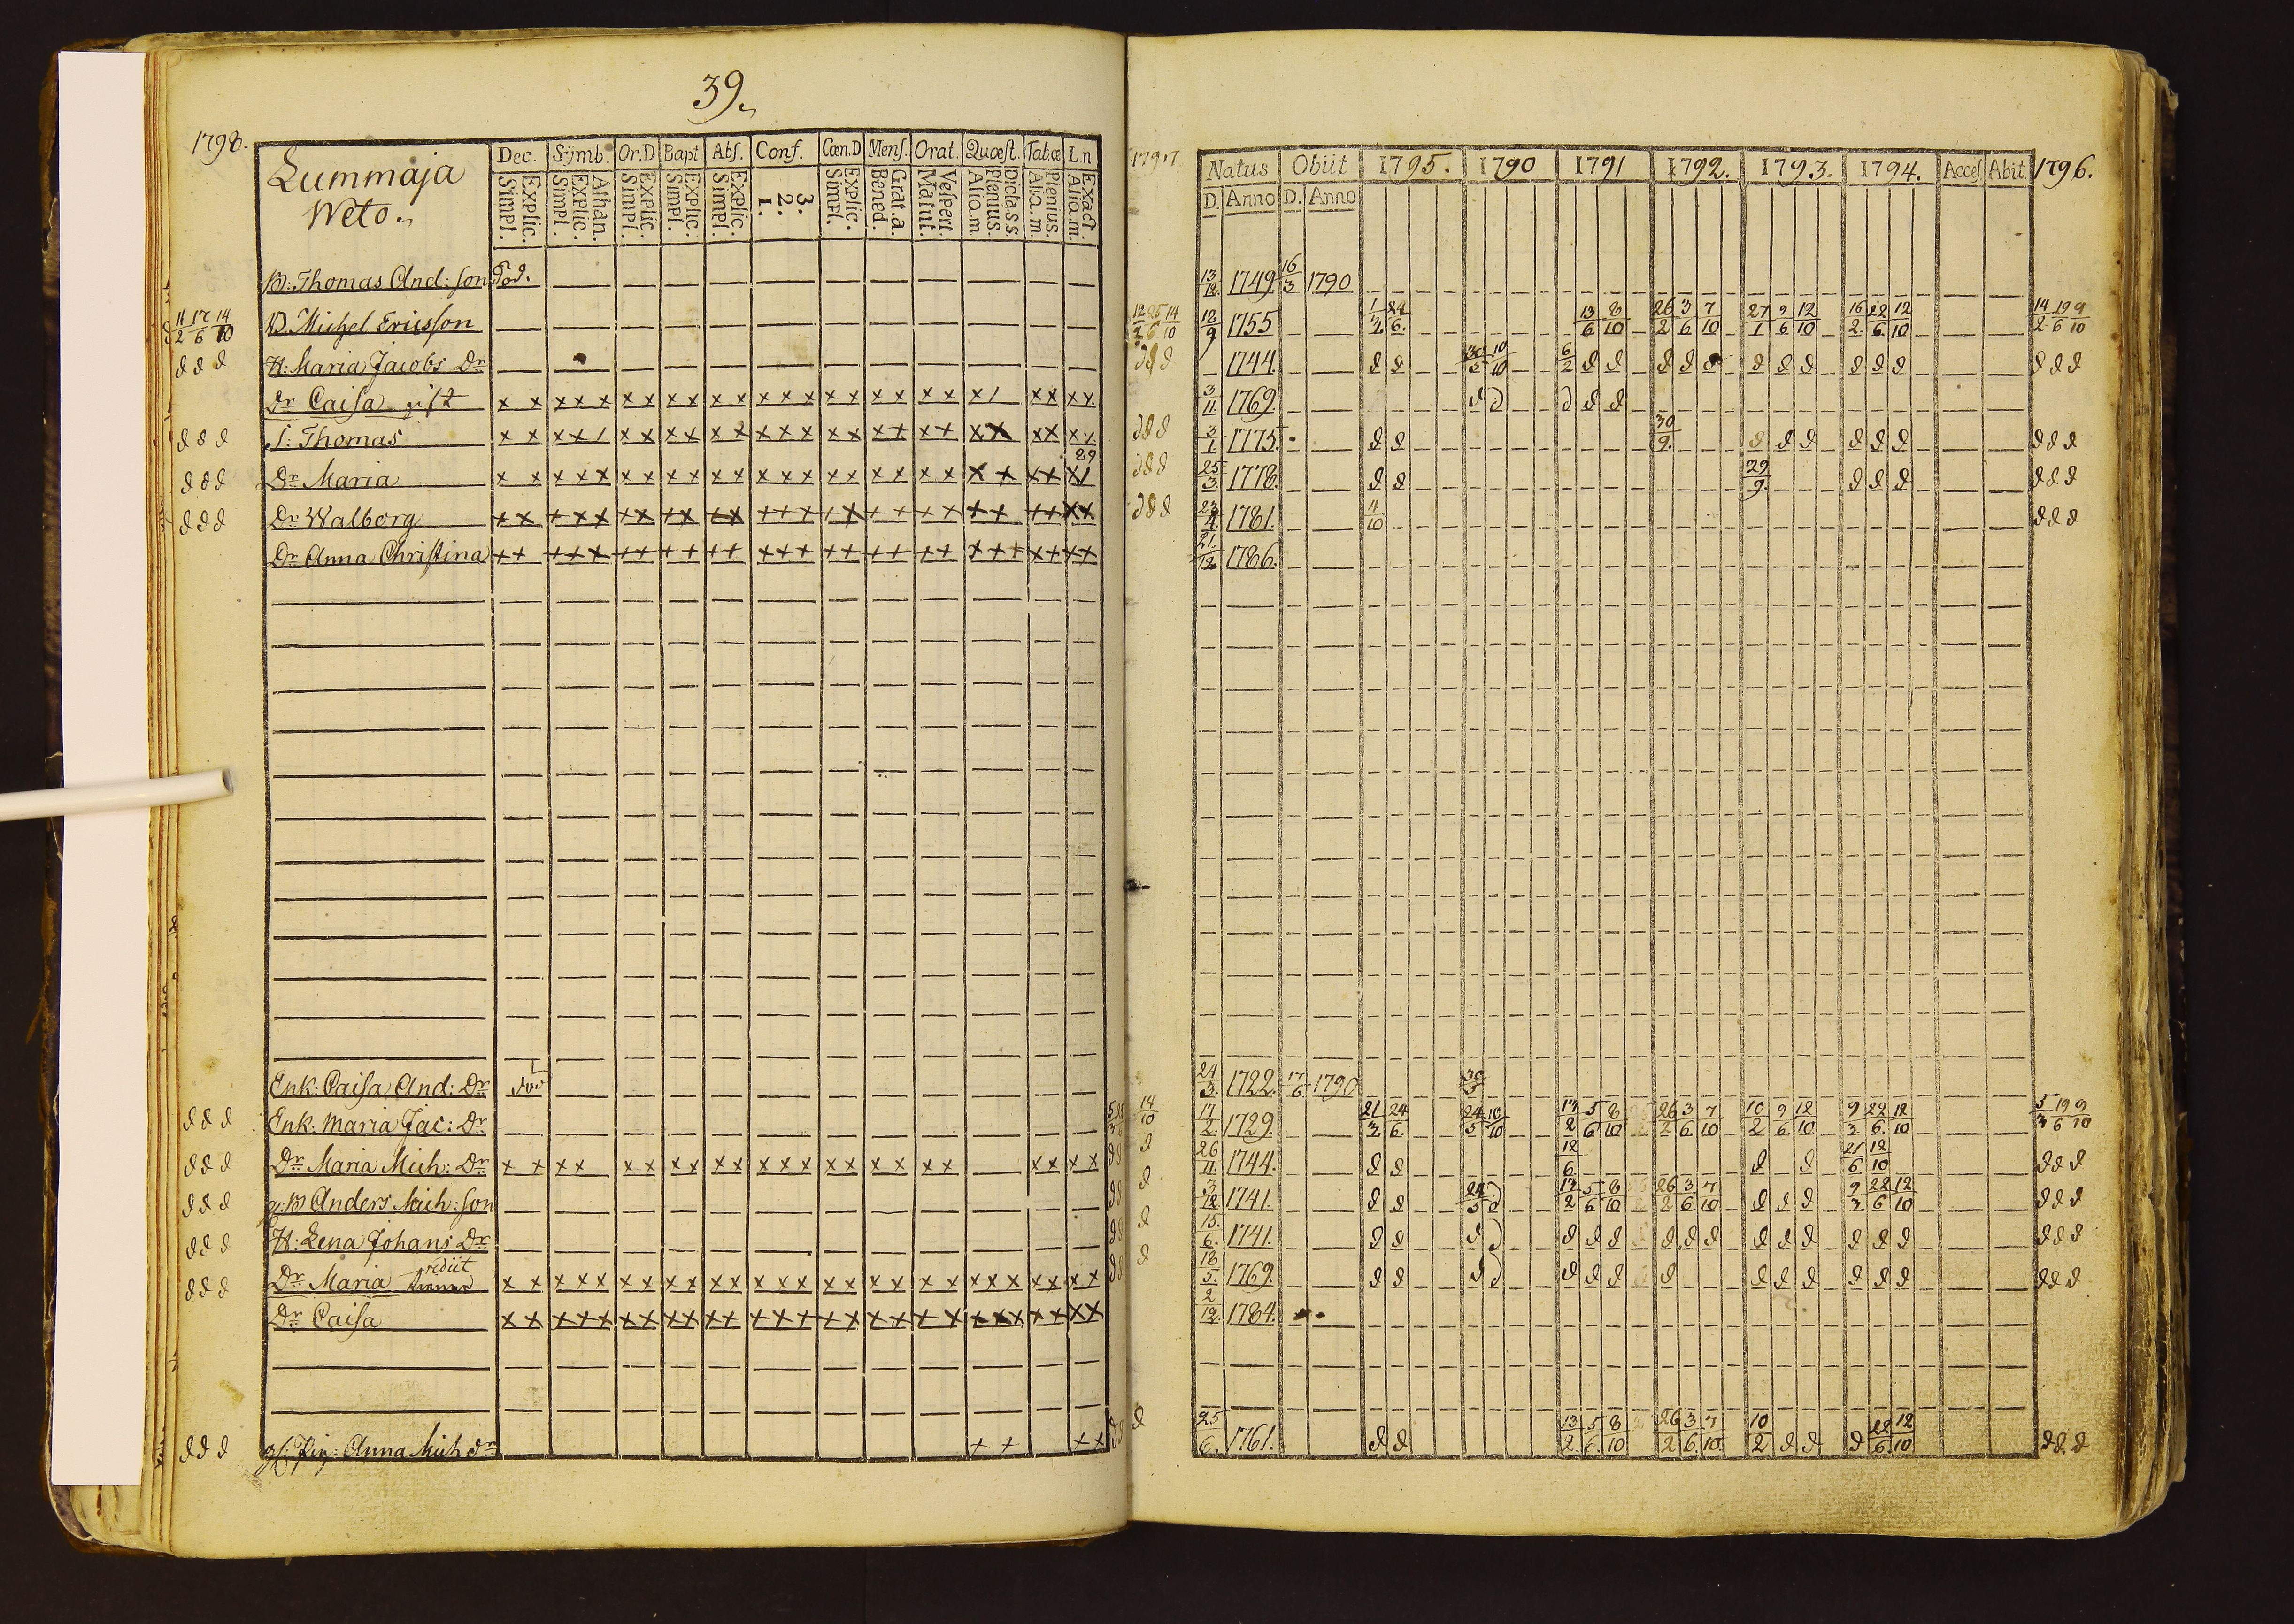 39.
1798.
Lummaja
Weto.
Dec. Symb. Or.D Bapt. Abs. Conf. Cœn.D Mens. Orat. Quœst. Tab.œ L.n
Simpl. Explic. Simpl. Explic. Athan. Simpl. Explic. Simpl. Explic. Simpl. Explic. 1. 2. 3. Simpl. Explic. Bened. Grat.a Matut. Vespert. Aliq.m Plenius. Dicta s.s. Aliq.m Plenius. Aliq.m Exact.
B: Thomas And: son Död.
11/2 17/6 14/10 B. Michel Ericsson
d d d H: Maria Jacobs Dr
Dr Caisa gift x x x x x x x x x x x x x x x x x x x x x / x x x x
d d d S: Thomas x x x x / x x x x x x x x x x x x x x x x x x x x x
d d d Dr Maria x x x x x x x x x x x x x x x x x x x x x x x x x / 89
d d d Dr Walborg x x x x x x x x x x x x x x x x x x x x x x x x x
Dr Anna Christina x x x x x x x x x x x x x x x x x x x x x x x x x x
Enk: Caisa And: Dr död
d d d Enk: Maria Jac: Dr
d d d Dr Maria Mich: Dr x x x x x x x x x x x x x x x x x x x x x x x
d d d B Anders Mich: son
d d d H: Lena Johans Dr
d d d Dr Maria rediit x x x x x x x x x x x x x x x x x x x x x x x x x x
Dr Caisa x x x x x x x x x x x x x x x x x x x x x x x x x x
d d d Anna Mich dr x x x x
1797
Natus Obiit 1795. 1790 1791 1792. 1793. 1794. Acces Abit. 1796.
D. Anno D. Anno
13/12 1749 16/3 1790
18/9 1755 1/3 24/6 13/6 8/10 26/2 3/6 7/10 27/1 9/6 12/10 16/2 22/6 12/10 14/2 19/6 9/10
d d d 1744 d d 30/5 10/10 6/2 d d d d d d d d d d d d d d
3/11 1769 d d d d d
d d d 3/1 1775 d d 30/9 d d d d d d d d d
d d d 25/3 1778 d d 29/9 d d d d d d
d d d 23/4 1781 4/10 d d d
21/12 1786
24/3 1722 17/6 1790 30/5
14/10 17/2 1729 21/3 24/6 24/5 10/10 13/2 5/6 8/10 26/2 3/6 7/10 10/2 9/6 12/10 9/3 22/6 12/10 5/3 19/6 9/10
d d d 26/11 1744 d d 12/6 d d 21/6 12/10 d d d
d d d 3/12 1741 d d 24/5 d 13/2 5/6 8/10 26/2 3/6 7/10 d d d 9/3 22/6 12/10 d d d
d d d 15/6 1741 d d d d d d d d d d d d d d d d d d d
d d d 18/5 1769 d d d d d d d d d d d d d d d d d
2/12 1784
d d d 25/6 1761 d d 13/2 5/6 8/10 26/2 3/6 7/10 10/2 d d d 22/6 12/10 d d d